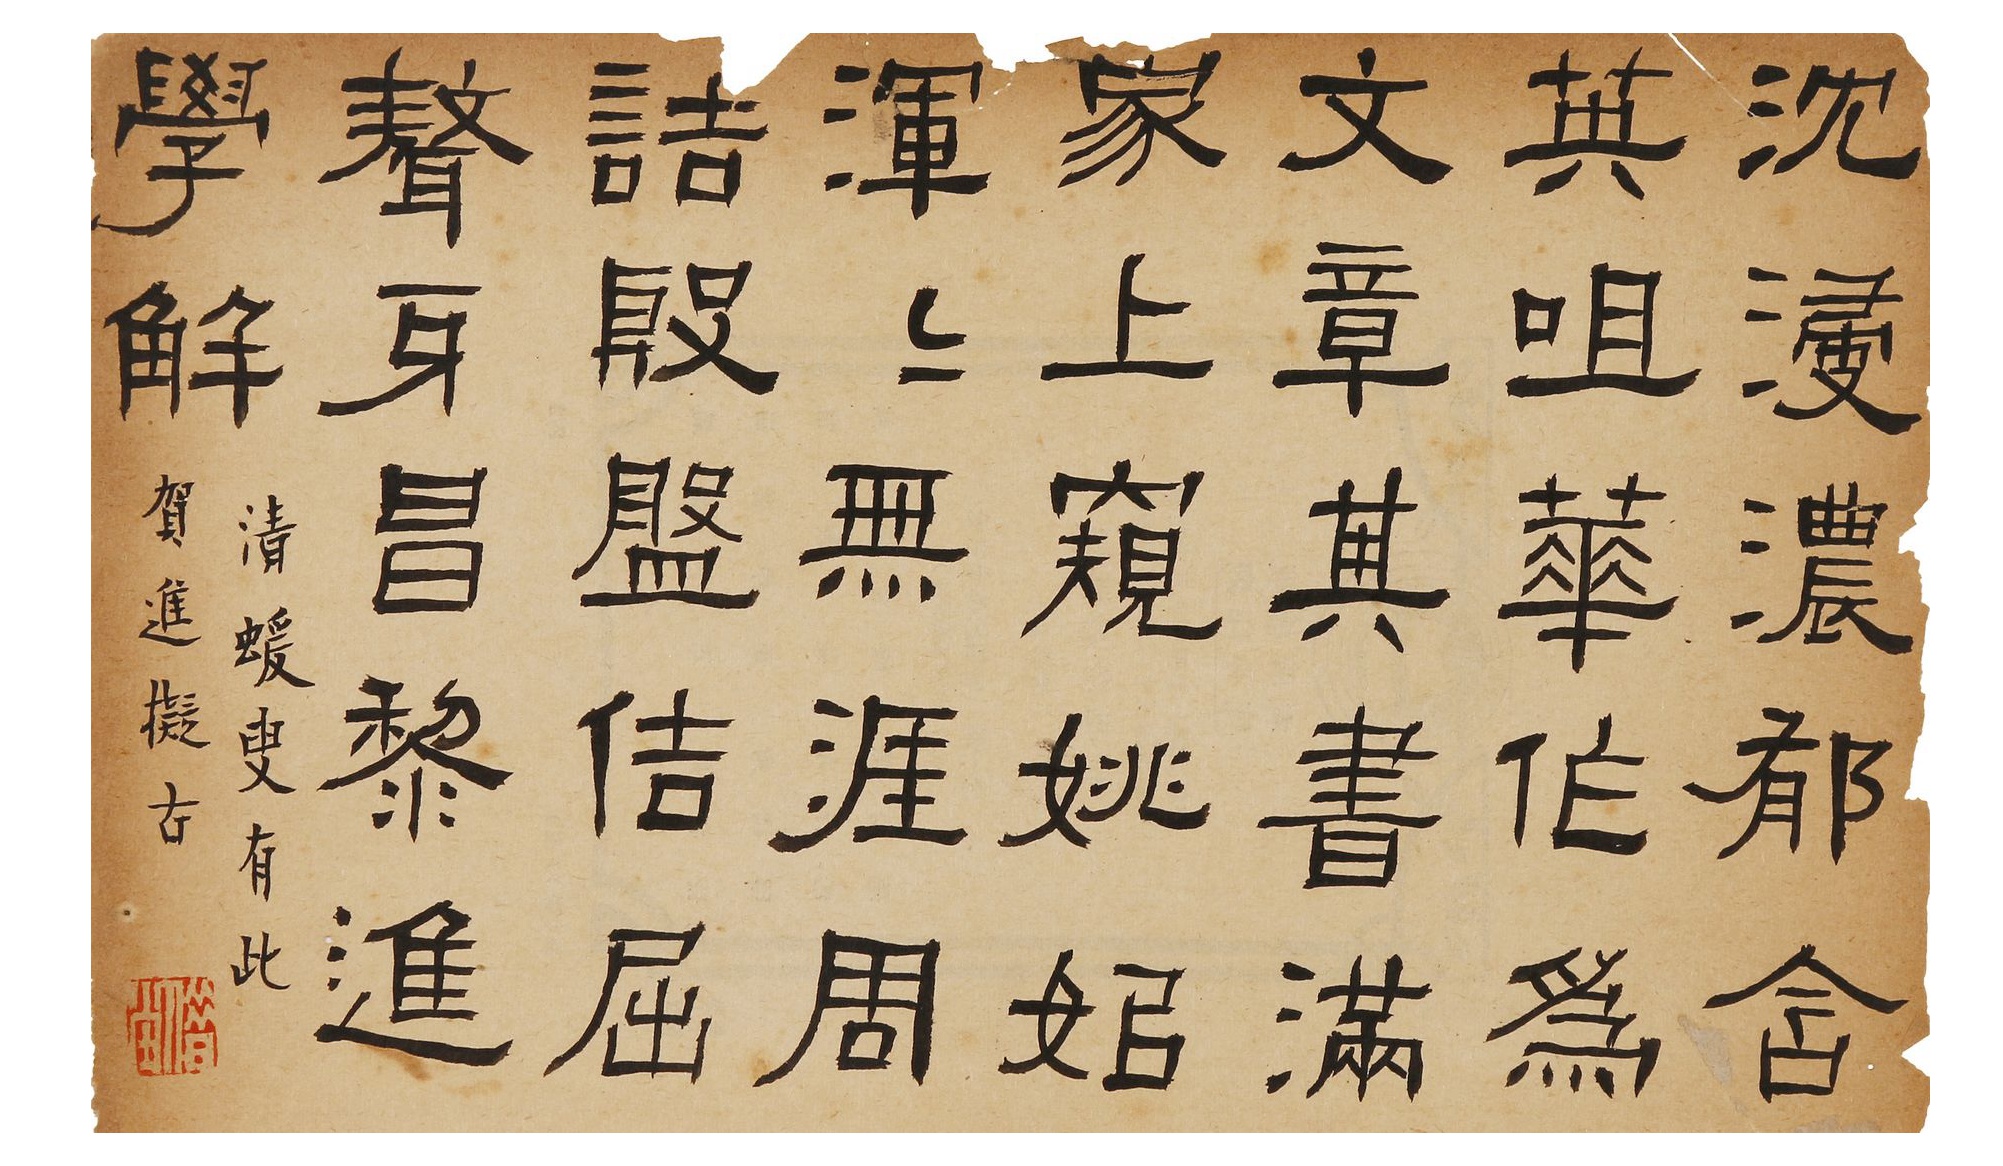 沈浸濃郁含
英咀華作爲
文章其書滿
家上窺姚姒
渾〻無涯周
誥殷盤佶屈
聱牙昌黎進
學解
清蝯叟有此
賀進擬古